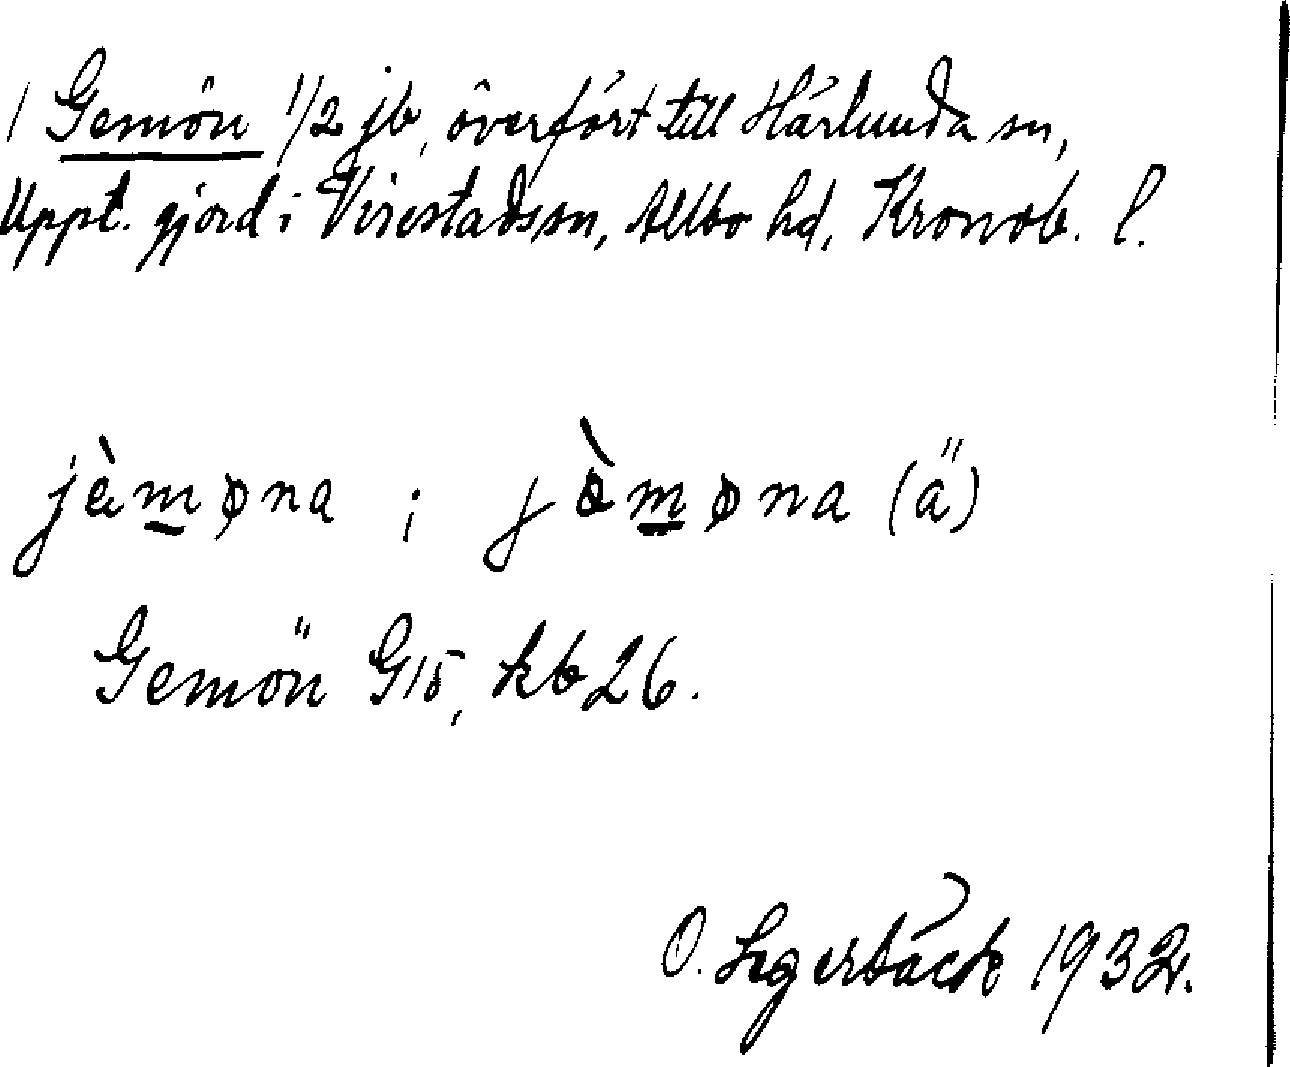 1 Gemön 1/2 jb, överfört till Härlunda sn,
Uppt. gjord i Virestads sn, Allbo hd, Kronob. l.
jèmøna ; jòmøna (ä)
Gemön G15, kb 26.
O. Segerbäck 1932.